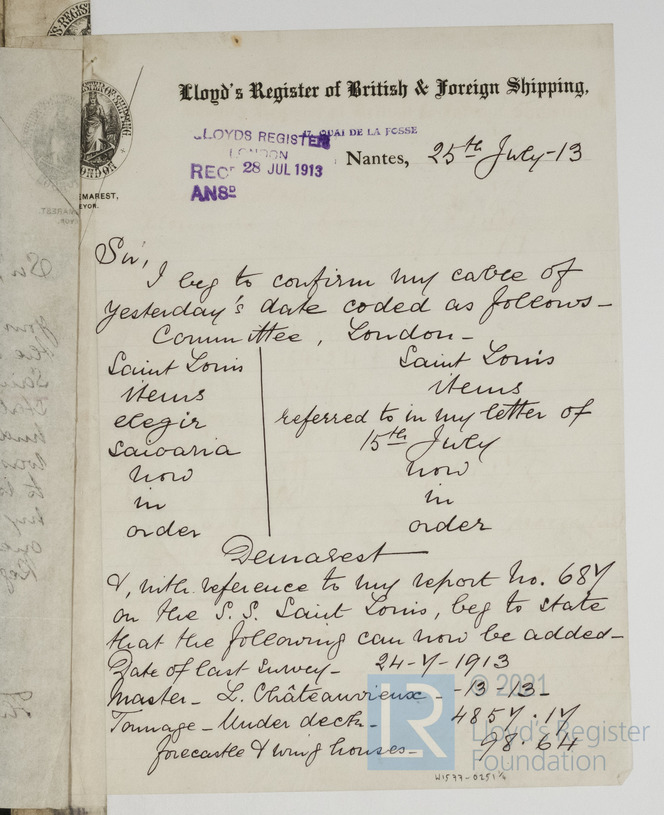 Lloyd's Register of British & Foreign Shipping,
LLOYDS REGISTER
LONDON
RECD 28 JUL 1913
ANSD
QUAI DE LA FOSSE
Nantes, 25th July-13
LONDON
EMAREST,
EYOR.
Sir,
I beg to confirm my cable of
yesterday's date coded as follows-
Committee, London-
Saint Louis | Saint Louis
items | items
elegir | referred to in my letter of
saioaria | 15th July
now | now
in | in
order | order
Demarest
&, with reference to my report No. 687
on the S.S. Saint Louis, beg to state
that the following can now be added-
Date of last survey- 24-7-1913
Master- L. Châteauvieux- -13-13-
Tonnage- Under deck- 4857.17
forecastle & wing houses- 98.64
© 2021
LR
Lloyd's Register
Foundation
W1577-0251 1/4